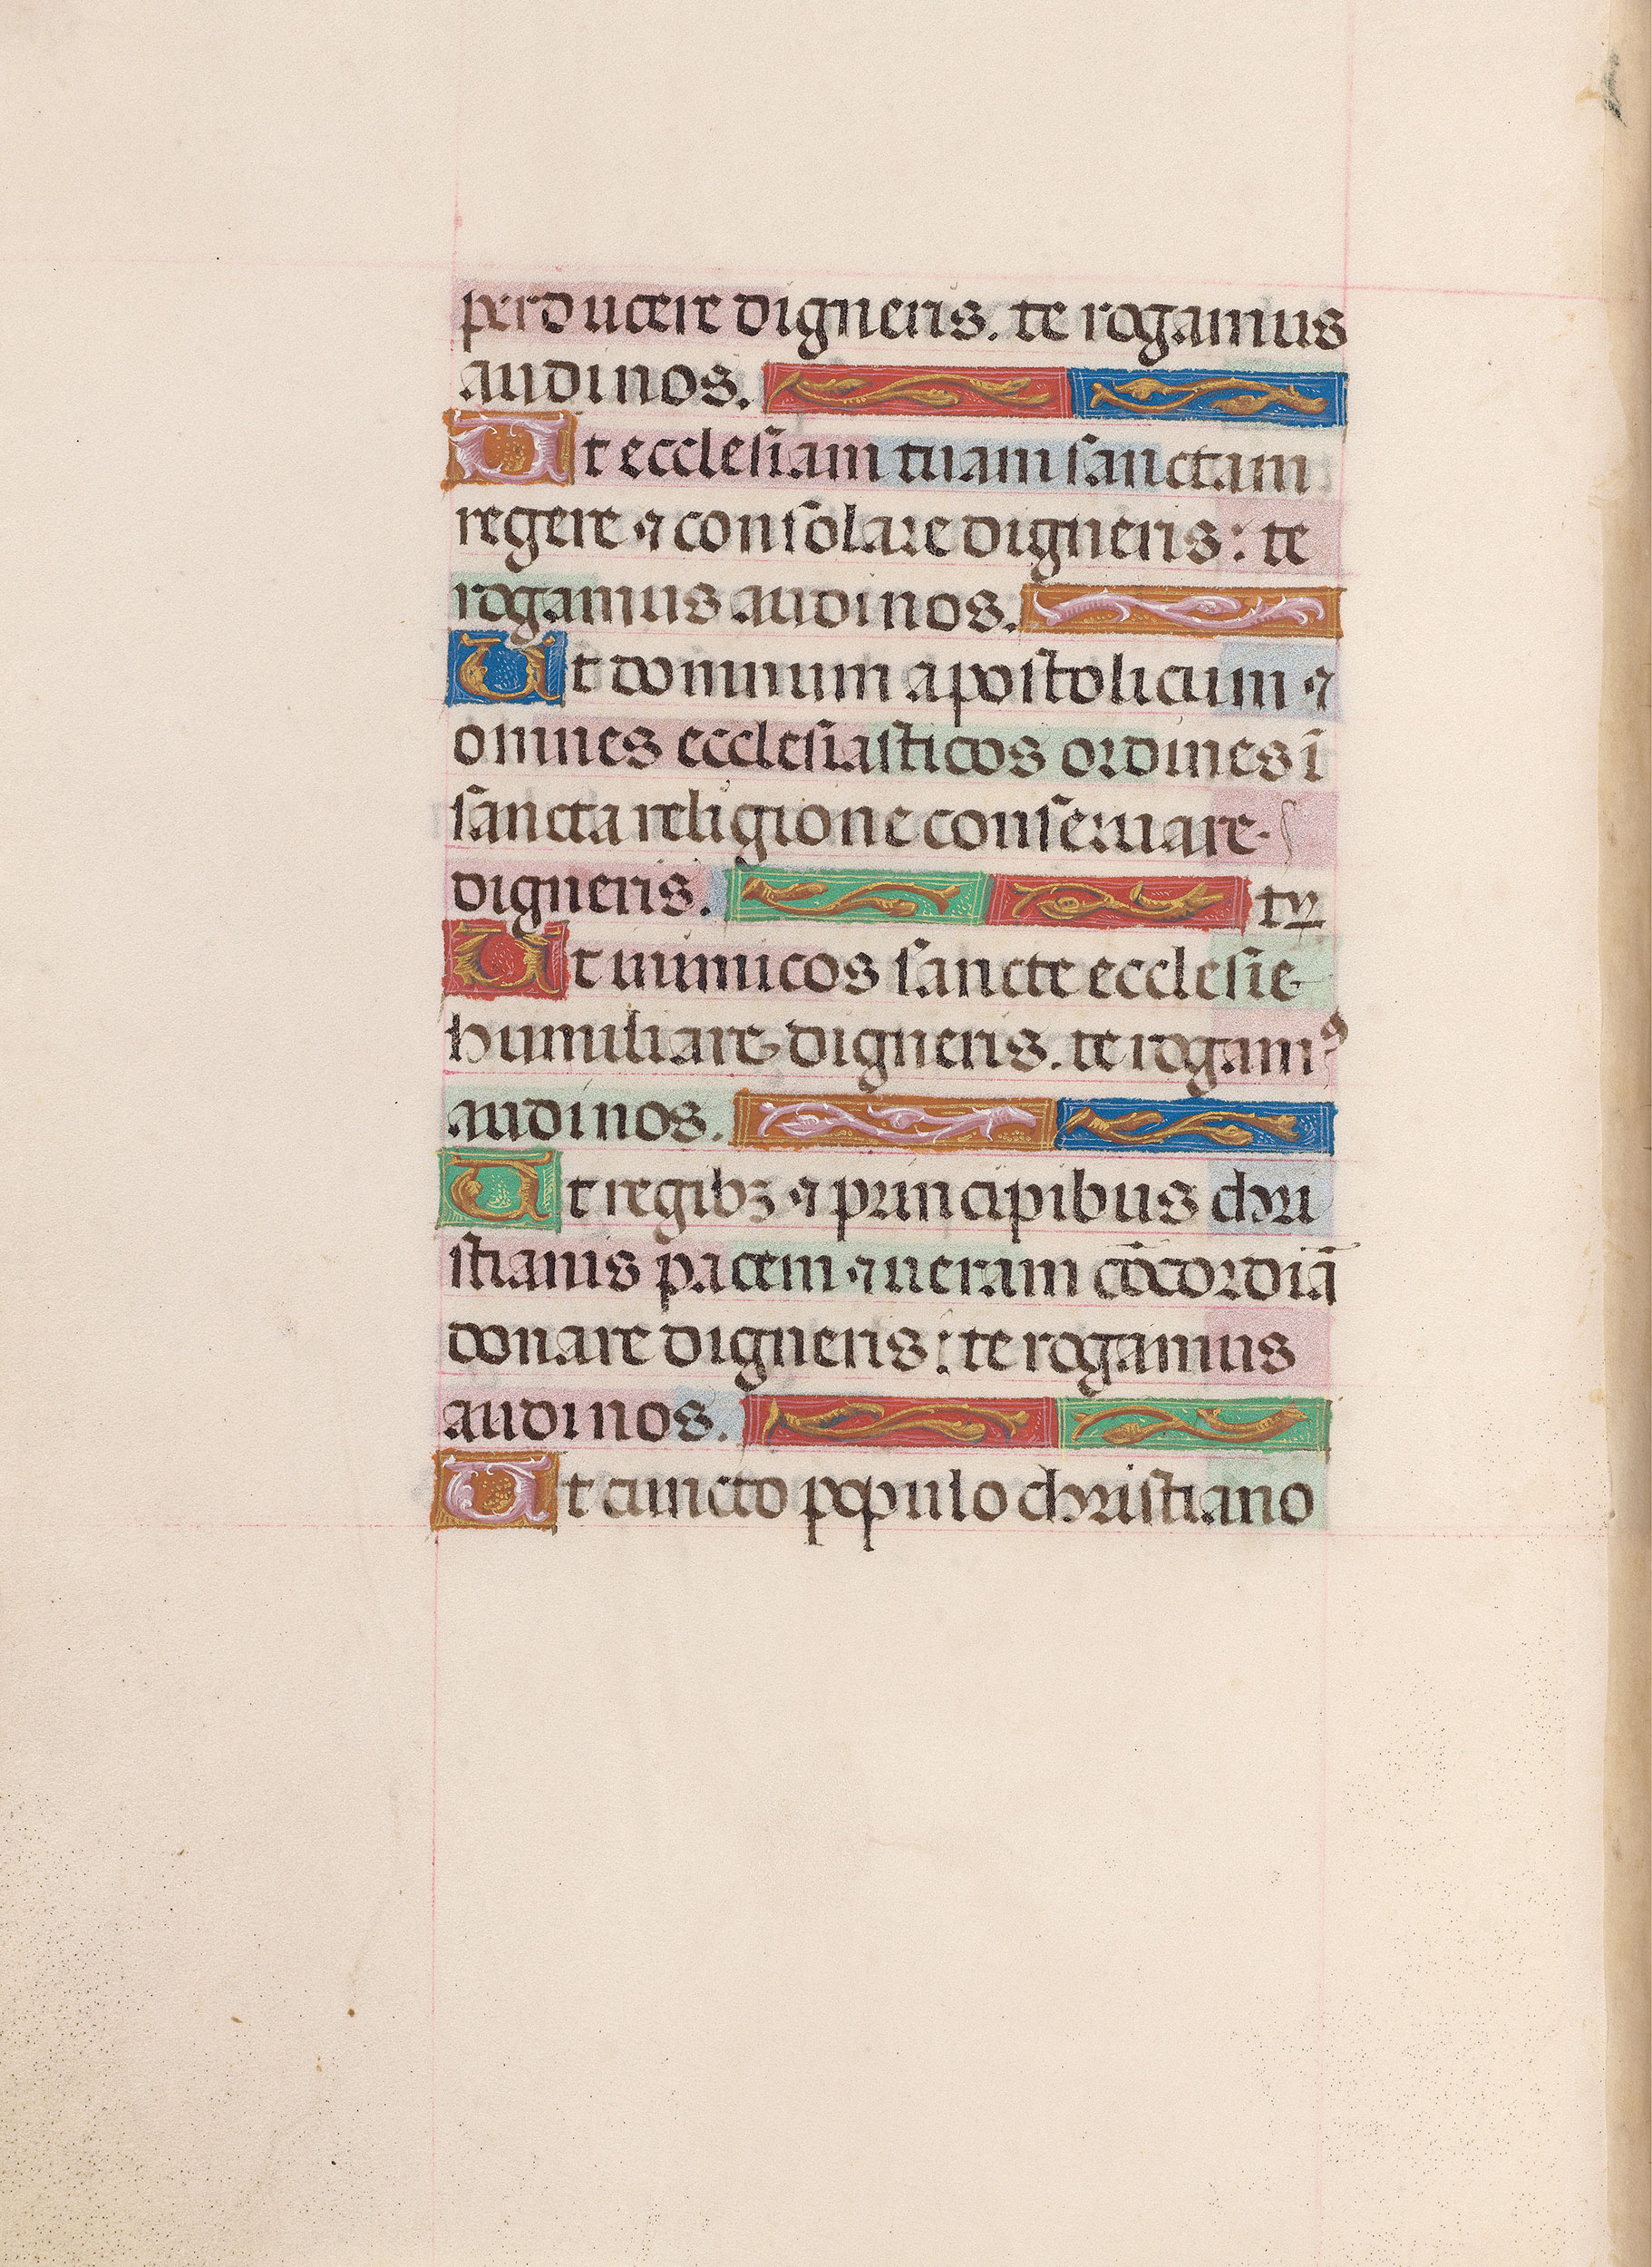 perducere digneris. te rogamus
audi nos.
Ut ecclesiam tuam sanctam
regere ⁊ consolare digneris: te
rogamus audi nos.
Ut domnum apostolicum ⁊
omnes ecclesiasticos ordines ī
sancta religione conseruare
digneris. ty
Ut inimicos sancte ecclesie
humiliare digneris. te rogamꝰ
audi nos.
Ut regibꝫ ⁊ principibus chri
stianis pacem ⁊ ueram cōcordiā
donare digneris: te rogamus
audi nos.
Ut cuncto populo christiano